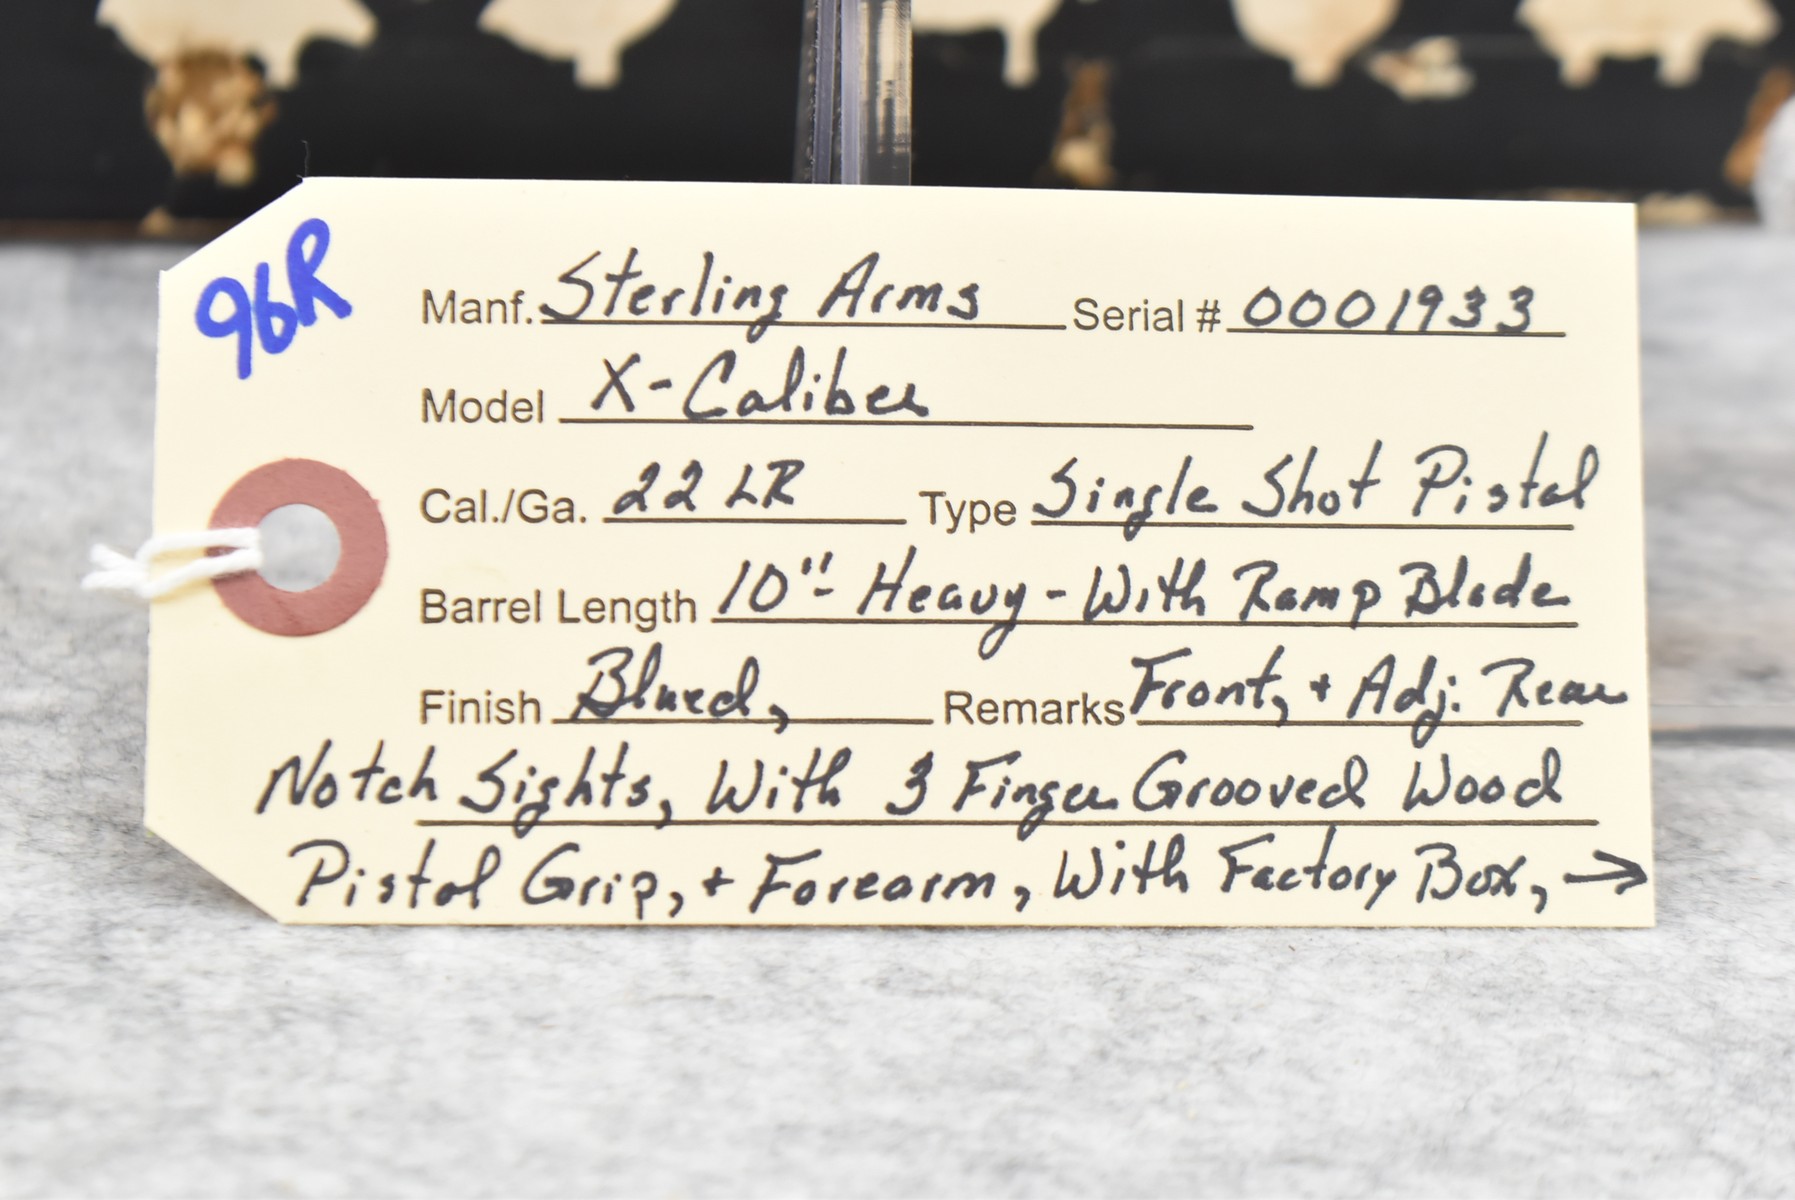 96R
Manf. Sterling Arms Serial # 0001933
Model X-Caliber
Cal./Ga. 22 LR Type Single Shot Pistol
Barrel Length 10" - Heavy - With Ramp Blade
Finish Blued, Remarks Front, + Adj. Rear
Notch Sights, With 3 Finger Grooved Wood
Pistol Grip, + Forearm, With Factory Box, →